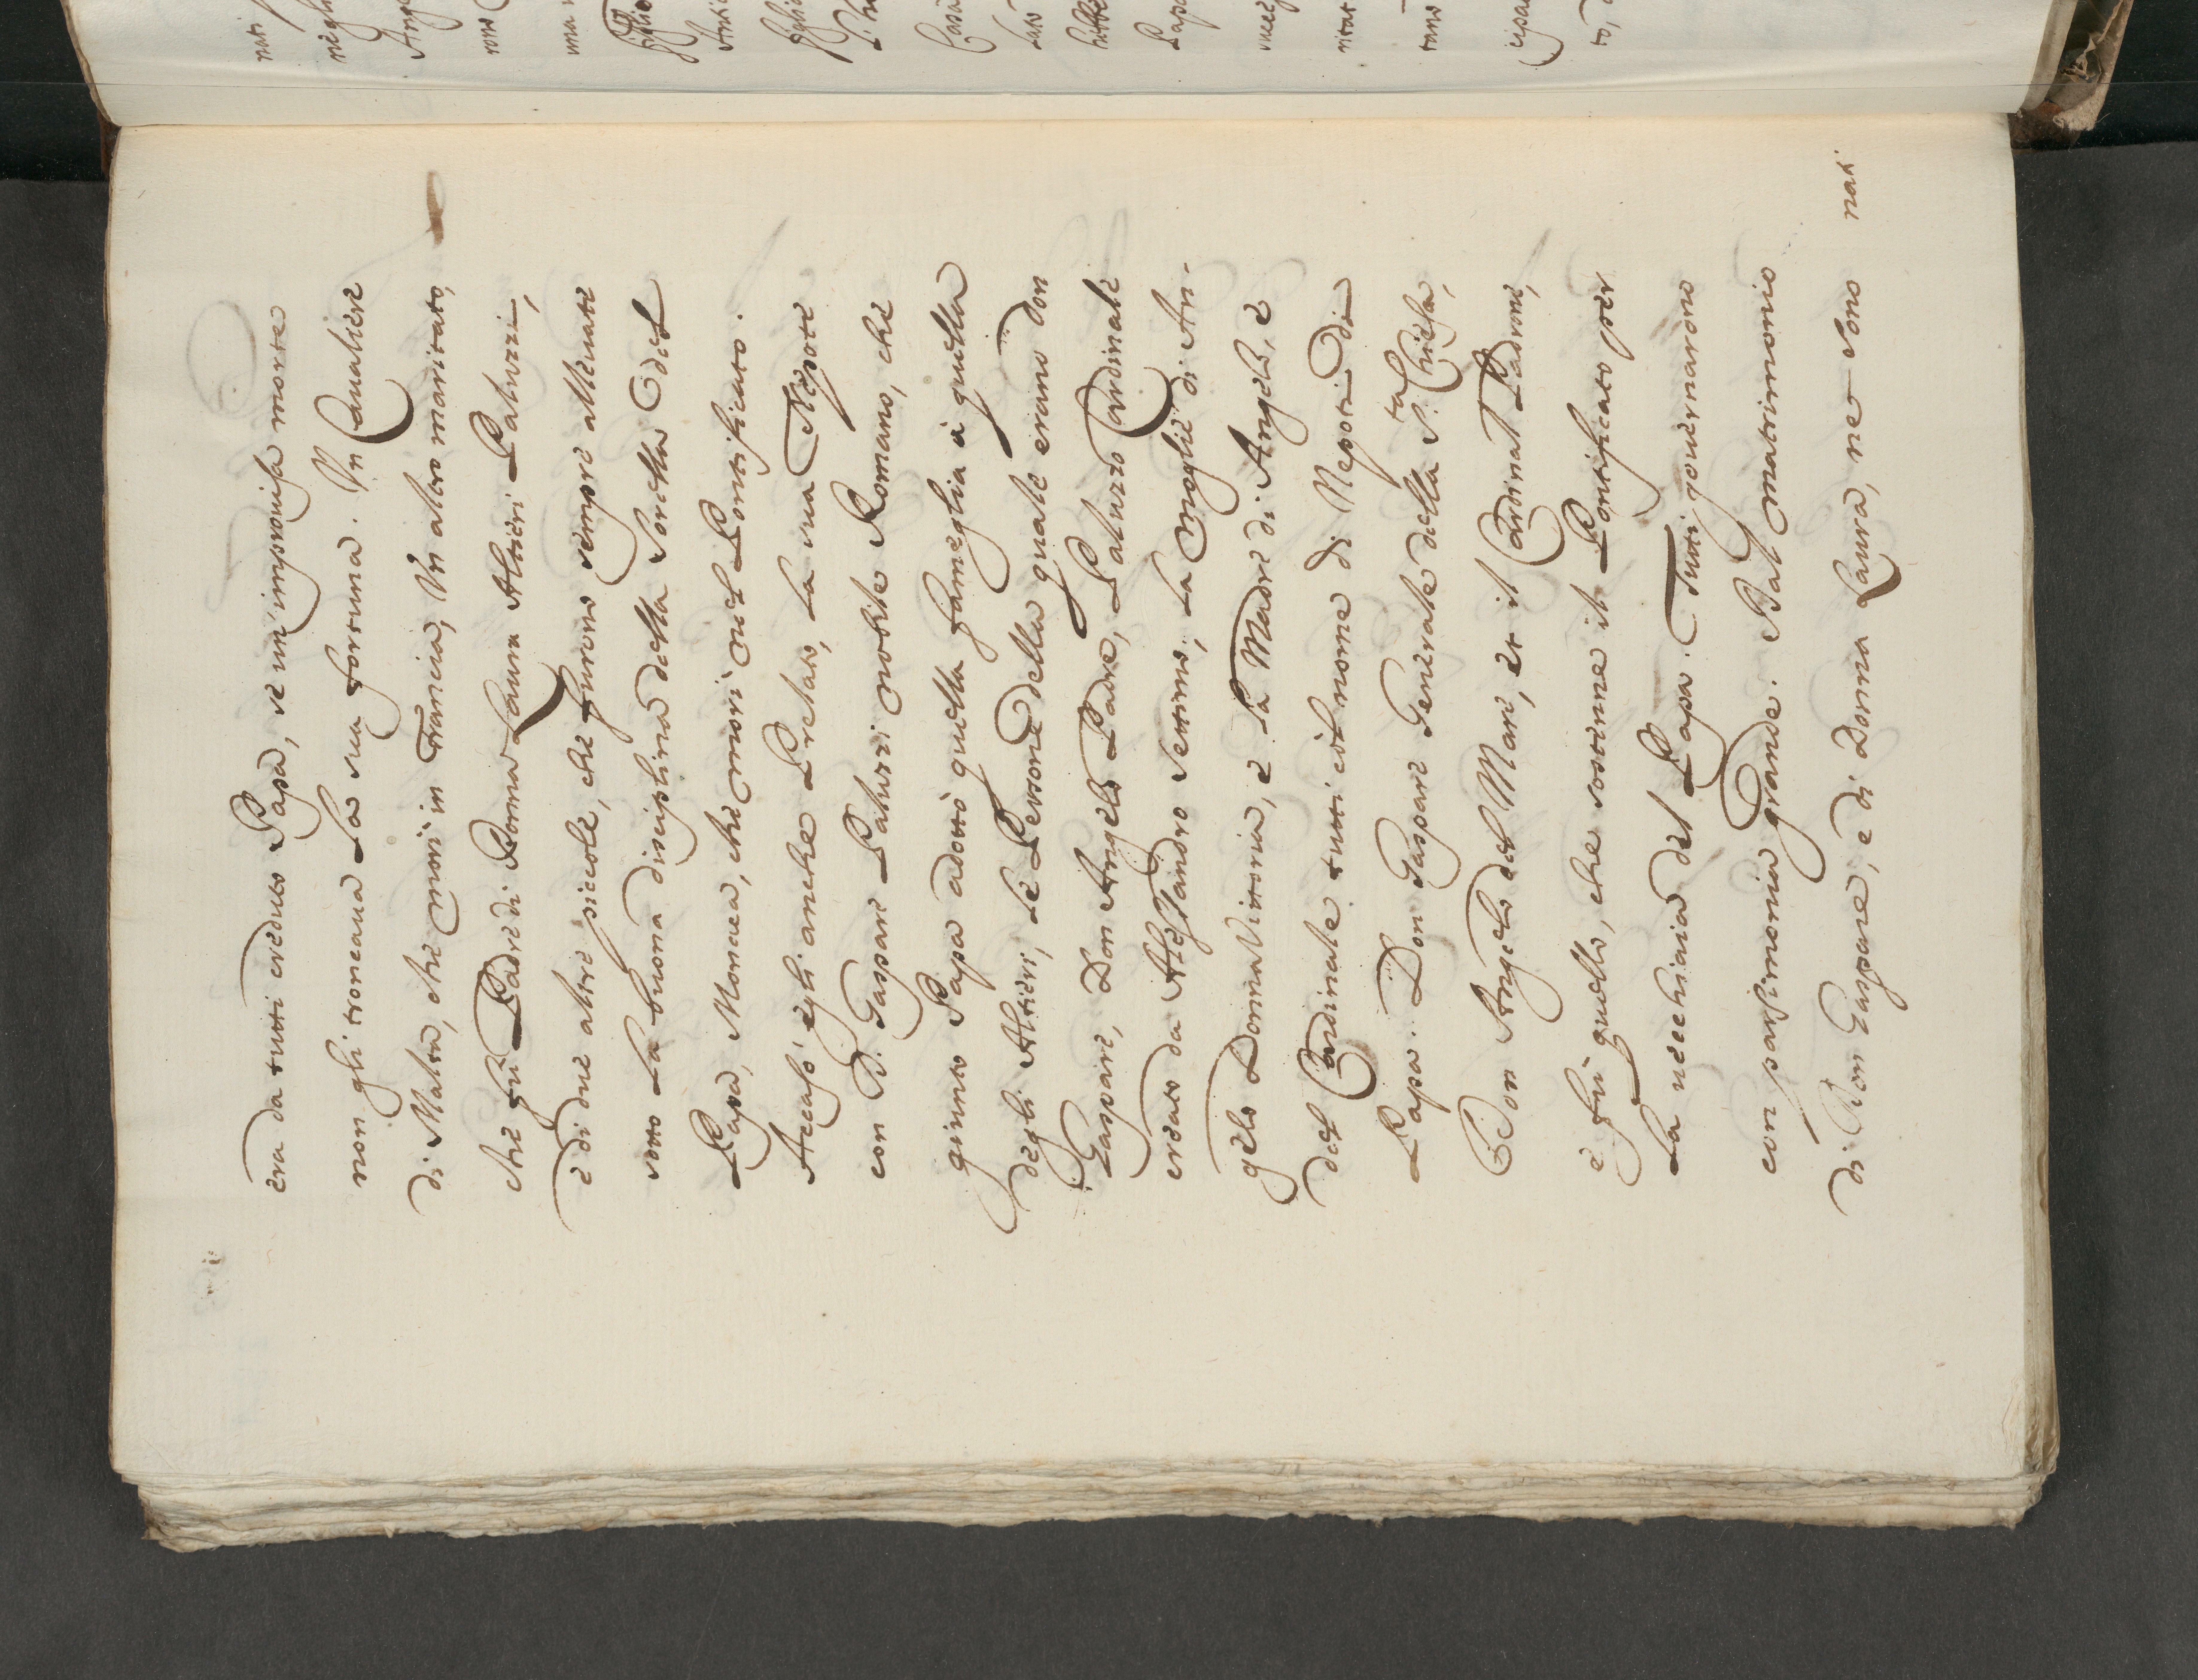 era da tutti creduto Papa, se un'improvisa morte
non gli troncaua la sua fortuna. Vn Caualiere
di Malta, che morì in Francia, Vn altro maritato,
che fù Padre di Donna Laura Altieri Paluzzi,
e di due altre piccole, che furono sempre alleuate
sotto la buona disciplina della Sorella del
Papa, Monaca, che morì nel Pontificato.
Accasò egli anche Prelato, la sua Nepote
con D. Gaspare Paluzzi nobile Romano, che
quinto Papa adottò quella fameglia à quella
degli Altieri, le Persone della quale erano Don
Gaspare, Don Angelo Padre, Paluzzo Cardinale
creato da Alessandro Settimo, la Moglie di An-
gelo Donna Vittoria, e la Madre di Angelo, e
del Cardinale tutti col nome di Nepoti di
Papa. Don Gaspare Generale della S.ta Chiesa,
Don Angelo del Mare, et il Cardinal Padrone,
e fù quello, che sostenne il Pontificato per
la uecchiaia del Papa. Tutti gouernarono
con parsimonia grande. Dal matrimonio
di Don Gaspare, e di Donna Laura, ne sono
nati